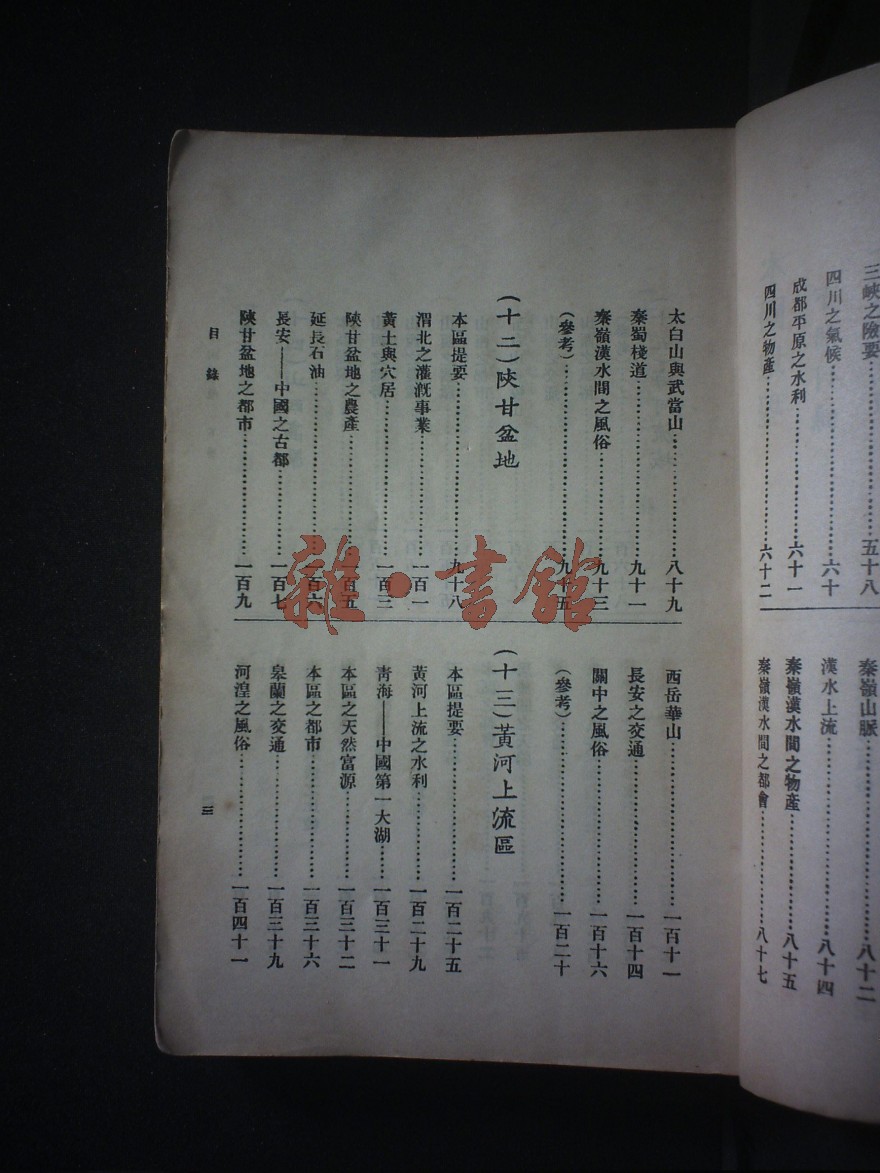 三峽之險要……五十八
四川之氣候……六十
成都平原之水利……六十一
四川之物產……六十二
秦嶺山脈……八十二
漢水上流……八十四
秦嶺漢水間之物產……八十五
秦嶺漢水間之都會……八十七
太白山與武當山……八十九
秦蜀棧道……九十一
秦嶺漢水間之風俗……九十三
(參考)……九十五
(十二)陝甘盆地
本區提要……九十八
渭北之灌漑事業……一百一
黃土與穴居……一百三
陝甘盆地之農產……一百五
延長石油……一百六
長安——中國之古都……一百七
陝甘盆地之都市……一百九
西岳華山……一百十一
長安之交通……一百十四
關中之風俗……一百十六
(參考)……一百二十
(十三)黃河上流區
本區提要……一百二十五
黃河上流之水利……一百二十九
青海——中國第一大湖……一百三十一
本區之天然富源……一百三十二
本區之都市……一百三十六
皋蘭之交通……一百三十九
河湟之風俗……一百四十一
目錄
三
雜·書館